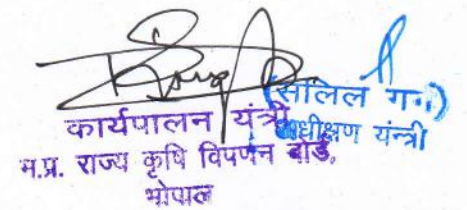 (सलिल गर्ग)
कार्यपालन यंत्री
अधीक्षण यंन्त्री
म.प्र. राज्य कृषि विपणन बोर्ड,
भोपाल